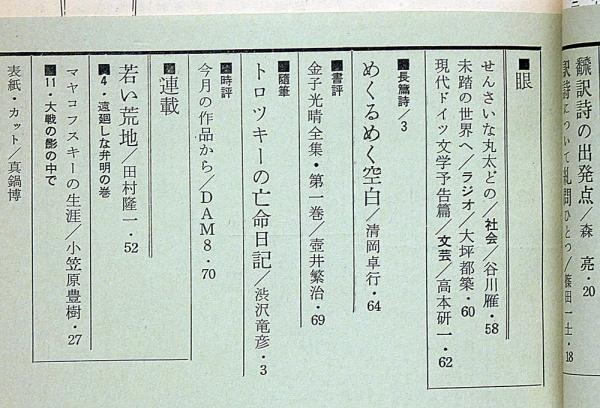 飜訳詩の出発点／森　亮・20
訳詩について乱問ひとつ／篠田一士・18
■眼
せんさいな丸太どの／社会／谷川雁・58
未踏の世界へ／ラジオ／大坪都築・60
現代ドイツ文学予告篇／文芸／高本研一・62
■長篇詩／3
めくるめく空白／清岡卓行・64
■書評
金子光晴全集・第一巻／壺井繁治・69
■随筆
トロツキーの亡命日記／渋沢竜彦・3
■時評
今月の作品から／DAM8・70
■連載
若い荒地／田村隆一・52
■4・遠廻しな弁明の巻
マヤコフスキーの生涯／小笠原豊樹・27
■11・大戦の影の中で
表紙・カット／真鍋博